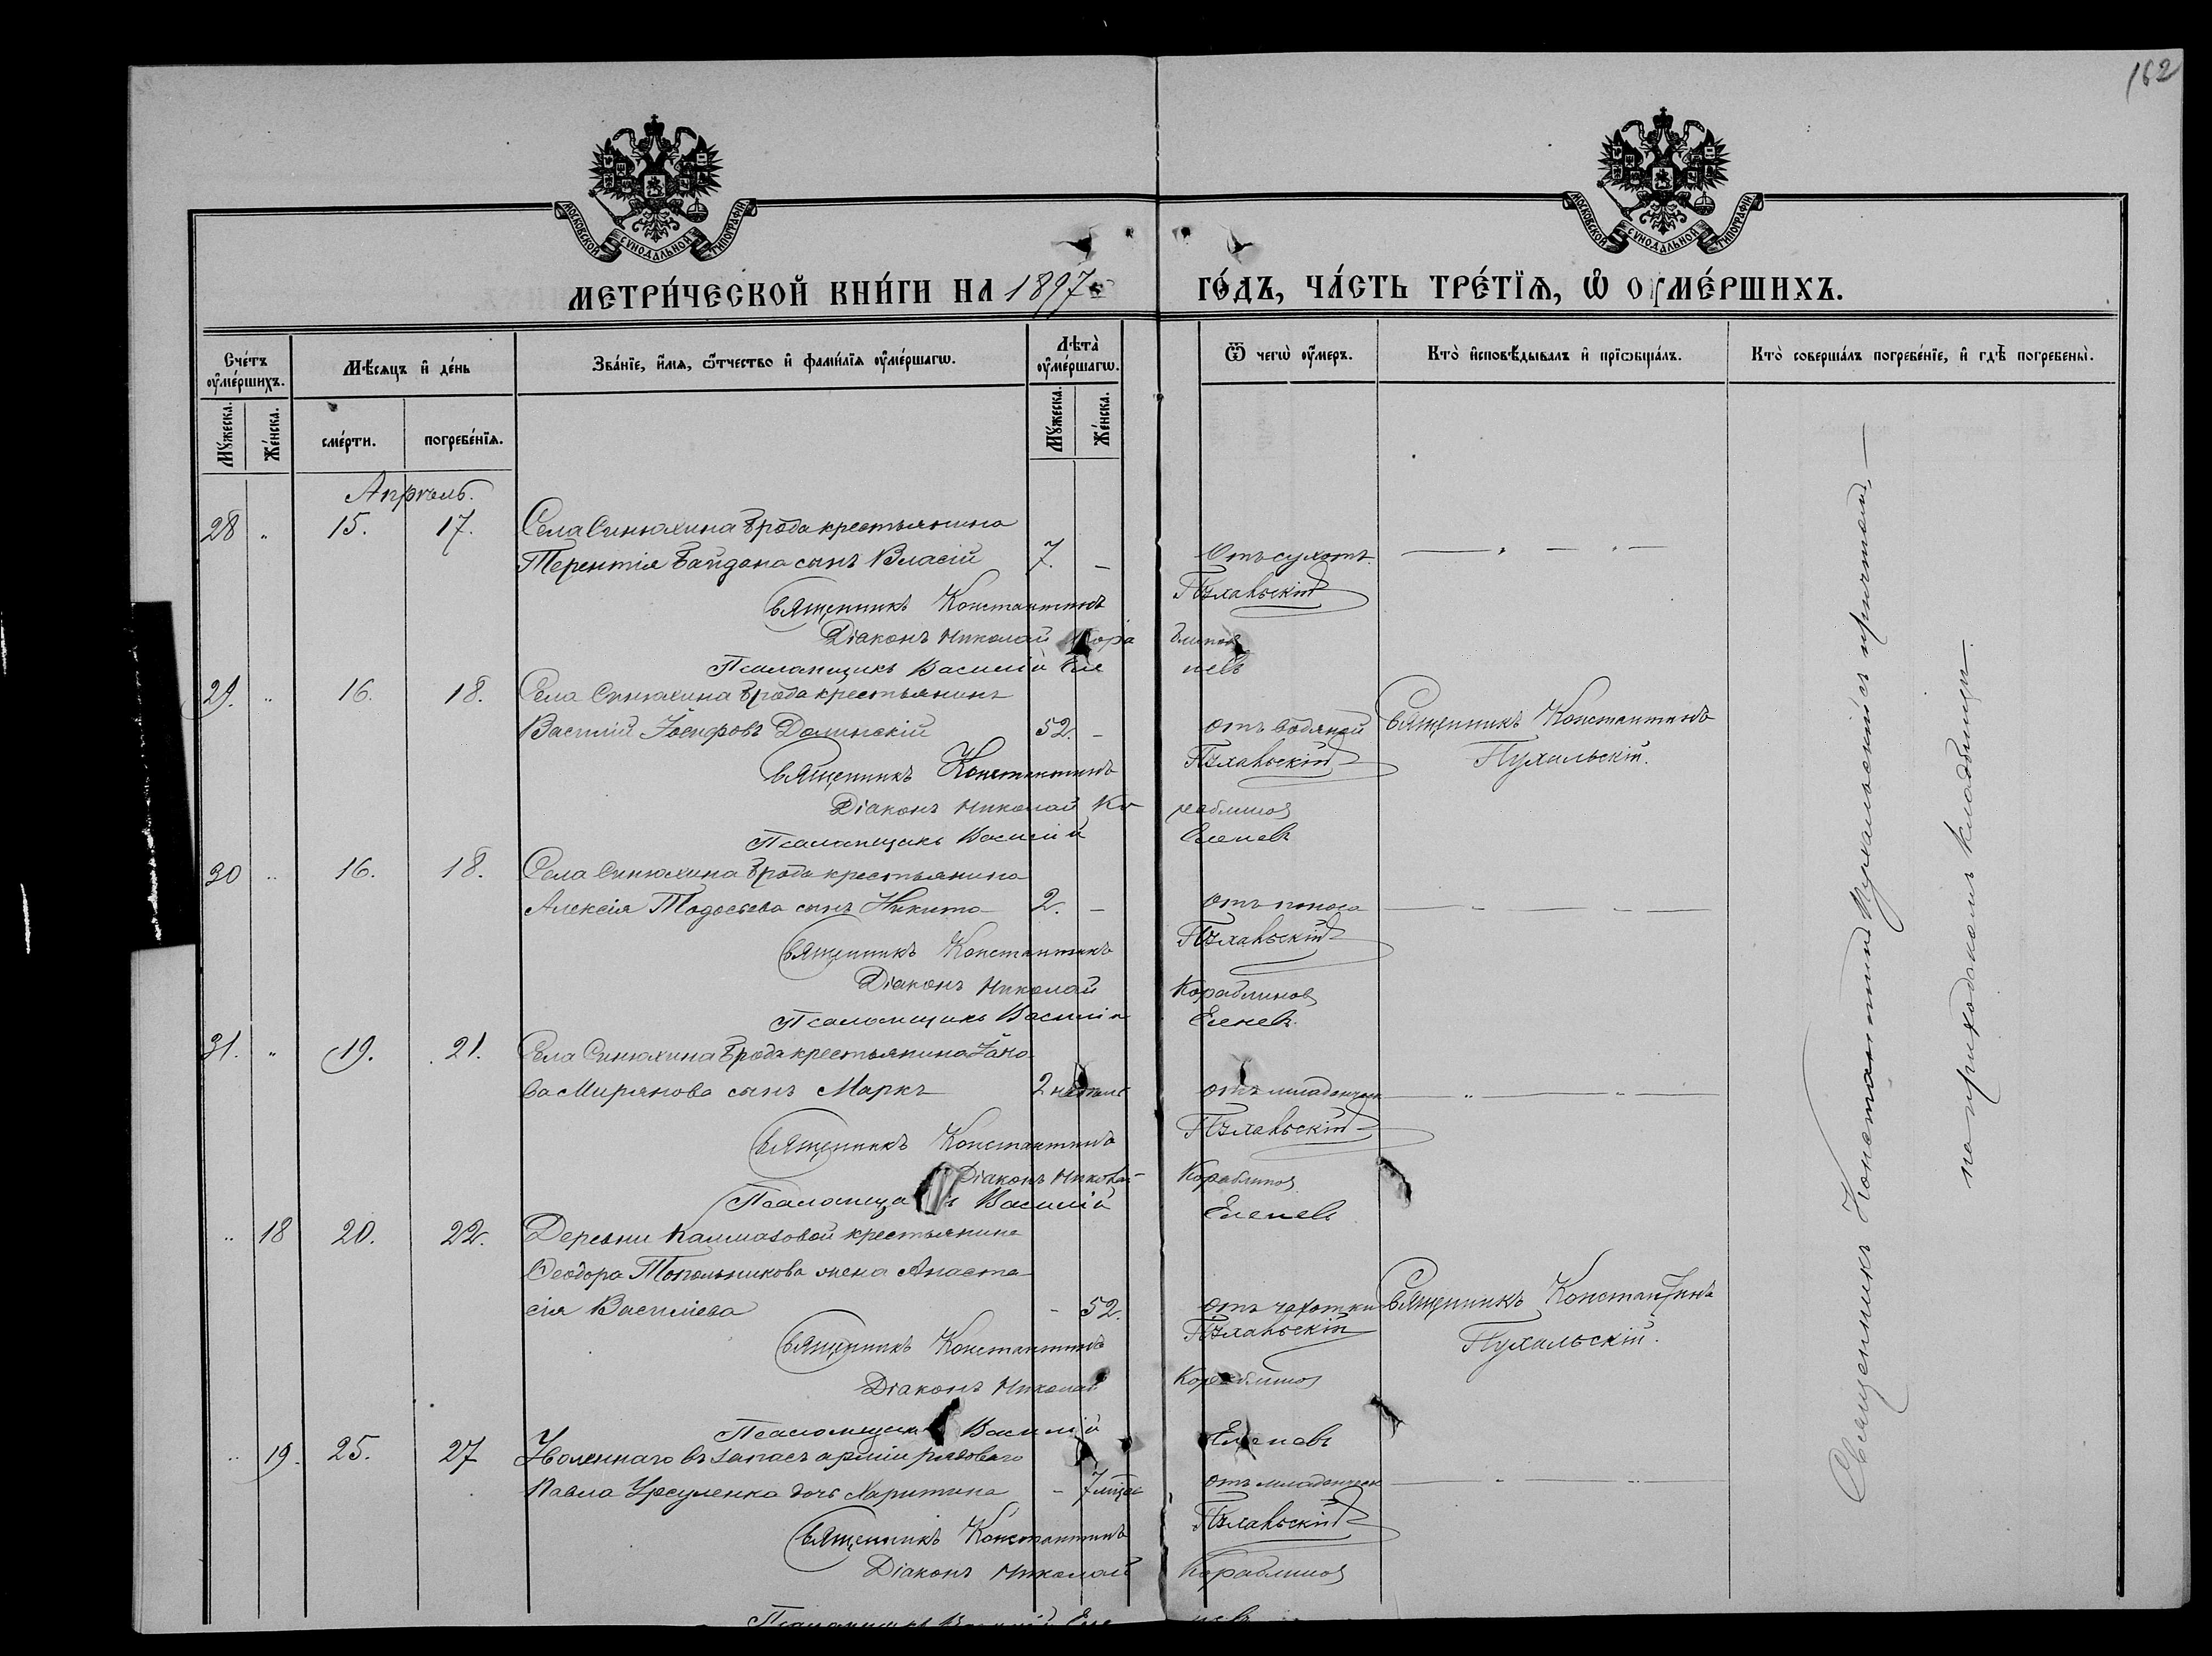 162
МОСКОВСКОЙ СѴНОДАЛЬНОЙ ТИПОГРАФІИ
МОСКОВСКОЙ СѴНОДАЛЬНОЙ ТИПОГРАФІИ
МЕТРИ́ЧЕСКОЙ КНИ́ГИ НА 1897 ГО́ДЪ, ЧА́СТЬ ТРЕ́ТІЯ, Ѡ ОУМЕ́РШИХЪ.
Сче́тъ оуме́ршихъ.
Мꙋ́жеска.
Же́нска.
Мѣ́сяцъ и де́нь
сме́рти.
погребе́нїя.
Зва́нїе, и́мя, ѻ́тчество и фами́лїя оуме́ршагѡ.
Лѣта̀ оуме́ршагѡ.
Мꙋ́жеска.
Же́нска.
Ѿ чегѡ̀ оу́меръ.
Кто̀ исповѣ́дывалъ и прїѡбща́лъ.
Кто̀ соверша́лъ погребе́нїе, и гдѣ̀ погребены̀.
Апрѣль.
28 " 15. 17. Села Синюхина Брода крестьянина
Терентія Байдана сынъ Власій 7. – Отъ сухотъ. – " – " –
Священникъ Константинъ Пухальскій
Діаконъ Николай Кораблиновъ
Псаломщикъ Василій Еленевъ
29. " 16. 18. Села Синюхина Брода крестьянинъ
Василій Іосифовъ Долинскій 52. – отъ водяной Священникъ Константинъ
Священникъ Константинъ Пухальскій Пухальскій.
Діаконъ Николай Кораблиновъ
Псаломщикъ Василій Еленевъ
30 " 16. 18. Села Синюхина Брода крестьянина
Алексія Тодосьева сынъ Никита 2. – отъ поноса – " – " –
Священникъ Константинъ Пухальскій
Діаконъ Николай Кораблиновъ
Псаломщикъ Василій Еленевъ.
31. " 19. 21. Села Синюхина Брода крестьянина Іако
ва Мирянова сынъ Маркъ 2 отъ младенческ – " – " –
Священникъ Константинъ Пухальскій
Діаконъ Николай Кораблиновъ
Псаломщикъ Василій Еленевъ
" 18 20. 22. Деревни Калмазовой крестьянина
Ѳеодора Топольникова жена Анаста
сія Василіева – 52. отъ чахотки Священникъ Константинъ
Священникъ Константинъ Пухальскій Пухальскій.
Діаконъ Николай Кораблиновъ
Псаломщикъ Василій Еленевъ
" 19. 25. 27 Уволеннаго въ запасъ арміи рядового
Павла Урсуленка дочь Харитина – 7 мѣсяц отъ младенческ – " – " –
Священникъ Константинъ Пухальскій
Діаконъ Николай Кораблиновъ
Псаломщикъ Василій Еленевъ
Священникъ Константинъ Пухальскій съ причтомъ, –
на приходскомъ кладбищѣ.